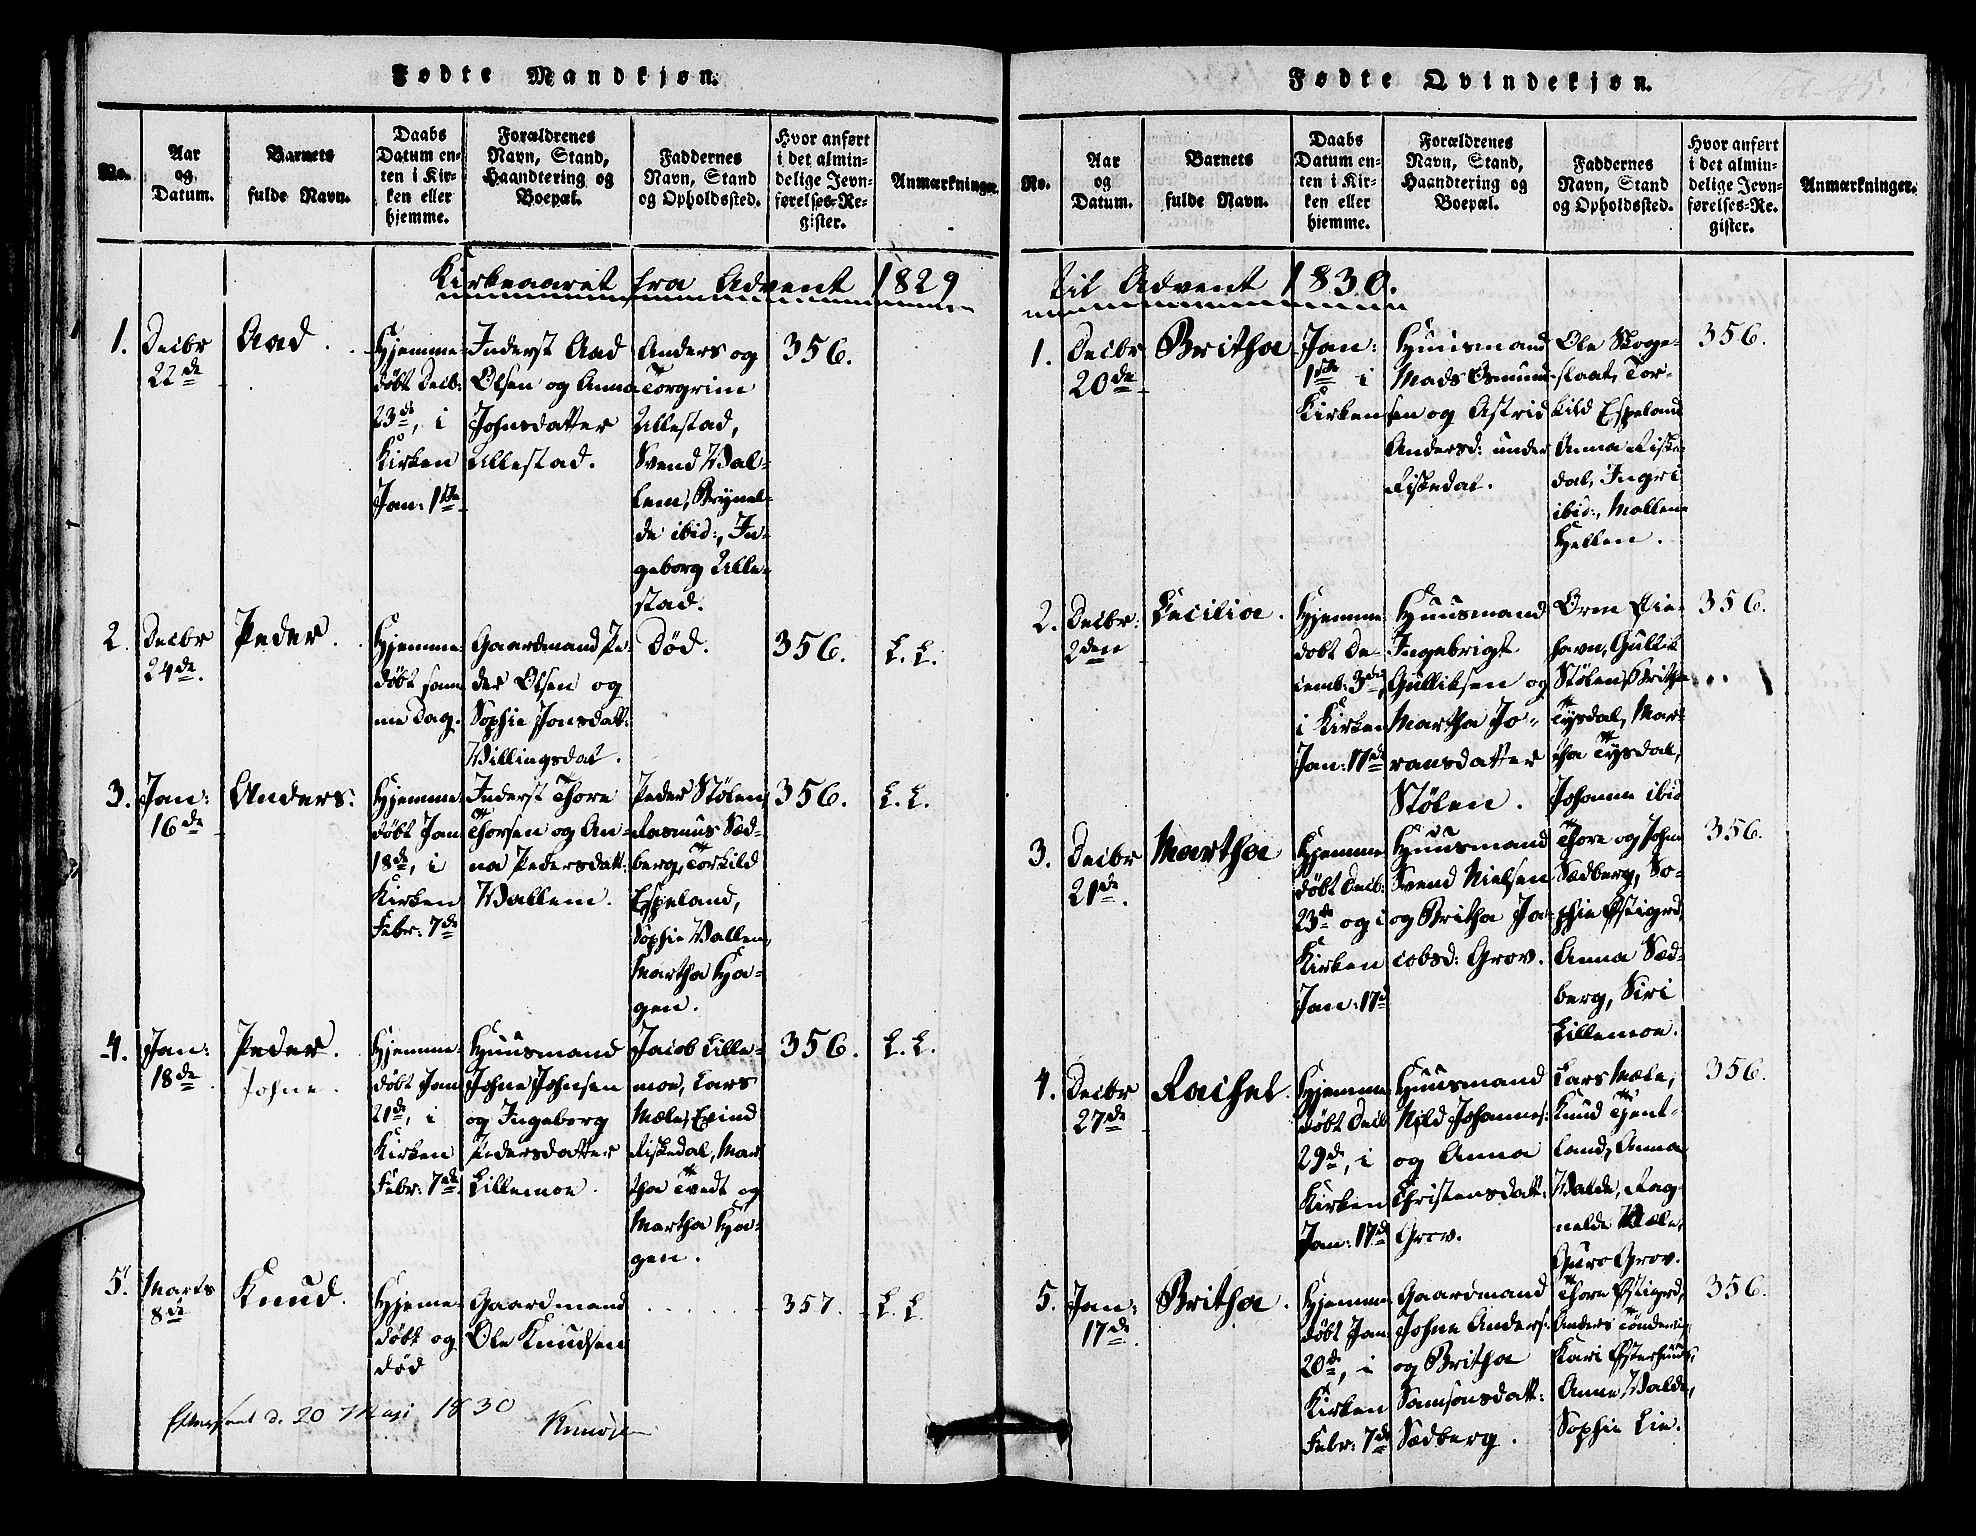 Fødte Mandkjøn.
No.
Aar
og
Datum.
Barnets
fulde Navn.
Daabs
Datum en-
ten i Kir-
ken eller
hjemme.
Forældrenes
Navn, Stand,
Haandtering og
Boepæl.
Faddernes
Navn, Stand
og Opholdssted.
Hvor anført
i det almin-
delige Jevn-
førelses-Re-
gister.
Anmærkninger.
Kirkeaaret fra Advent 1829
1.
Decbr
22de
Aad.
Hjemme-
døbt Decb:
23de, i
Kirken
Jan: 1ste
Inderst Aad
Olsen og Anna
Johnsdatter
Ullestad.
Anders og
Torgrim
Ullestad,
Svend Wal-
lem, Brynel-
de ibid:, In-
geborg Ulle-
stad.
356.
2.
Decbr
24de.
Peder.
Hjemme
døbt sam
me Dag.
Gaardmand Pe-
der Olsen og
Sophie Jonsdatt:
Willingsdal.
Død.
356.
L. L.
3.
Jan:
16de
Anders.
Hjemme
døbt Jan
18de, i
Kirken
Febr: 7de
Inderst Thore
Thorsen og An-
na Pedersdatt:
Wallem.
Peder Stølen
Rasmus Sæd-
berg, Torkild
Espeland,
Sophie Wallem,
Martha Hja-
gen.
356.
L. L.
4.
Jan:
18de
Peder.
Johne.
Hjemme-
døbt Jan
21de, i
Kirken
Febr: 7de
Huusmand
Johne Johnsen
og Ingeborg
Pedersdatter
Lillemoe.
Jacob Lille-
moe, Lars
Mæle, Eyind
Riskedal, Mar
tha Tvedt og
Martha Hja-
gen.
356.
L. L.
5.
Marts
8de
Knud.
Hjeme-
døbt og
død
Gaardmand
Ole Knudsen
. . . . . .
357.
L. L.
Efterseet d. 20 Maji 1830
Fødte Qvindekjøn.
Fol. 45.
No.
Aar
og
Datum.
Barnets
fulde Navn.
Daabs
Datum en-
ten i Kir-
ken eller
hjemme.
Forældrenes
Navn, Stand,
Haandtering og
Boepæl.
Faddernes
Navn, Stand
og Opholdssted.
Hvor anført
i det almin-
delige Jevn-
førelses-Re-
gister.
Anmærkninger.
til Advent 1830.
1.
Decbr
20de
Britha
Jan:
1ste i
Kirken
Huusmand
Mads Osmund-
sen og Astrid
Andersd: under
Riskedal.
Ole Skoge-
slaat, Tor-
kild Espeland
Anna Riske
dal, Ingri
ibid:, Mallene
Hellen.
356.
2.
Decbr:
2den
Cecilia.
Hjemme
døbt De-
cemb: 3de
i Kirken
Jan: 17de
Huusmand
Ingebrigt
Gulliksen og
Martha Jo-
ransdatter
Stølen.
Orm Vie-
havn, Gullik
Stølen, Britha
Tysdal, Mar-
tha Tysdal,
Johanne ibid
356.
3.
Decbr
21de.
Martha
Hjemme
døbt Decb:
23de og i
Kirken
Jan: 17d
Huusmand
Svend Nielsen
og Britha Ja-
cobsd: Grov.
Thore og Johne
Sædberg, So-
phie Østigrd,
Anna Sæd-
berg, Siri
Lillemoe.
356.
4.
Decbr
27de
Rachel.
Hjemme
døbt Decb
29de, i
Kirken
Jan: 17de
Huusmand
Nild Johannes:
og Anna
Christensdatt:
Grov.
Lars Mæle,
Knud Tjent-
land, Anna
Walde, Rag
nelde Mæle,
Guro Grov.
356.
5.
Jan:
17de
Britha.
Hjemme
døbt Jan
20de, i
Kirken
Febr: 7de
Gaardmand
Johne Anders:
og Britha
Samsonsdatt:
Sædberg.
Thore Østigrd,
Anders Tønde
Kari Østerhuus,
Anne Walde,
Sophie Lie.
356.